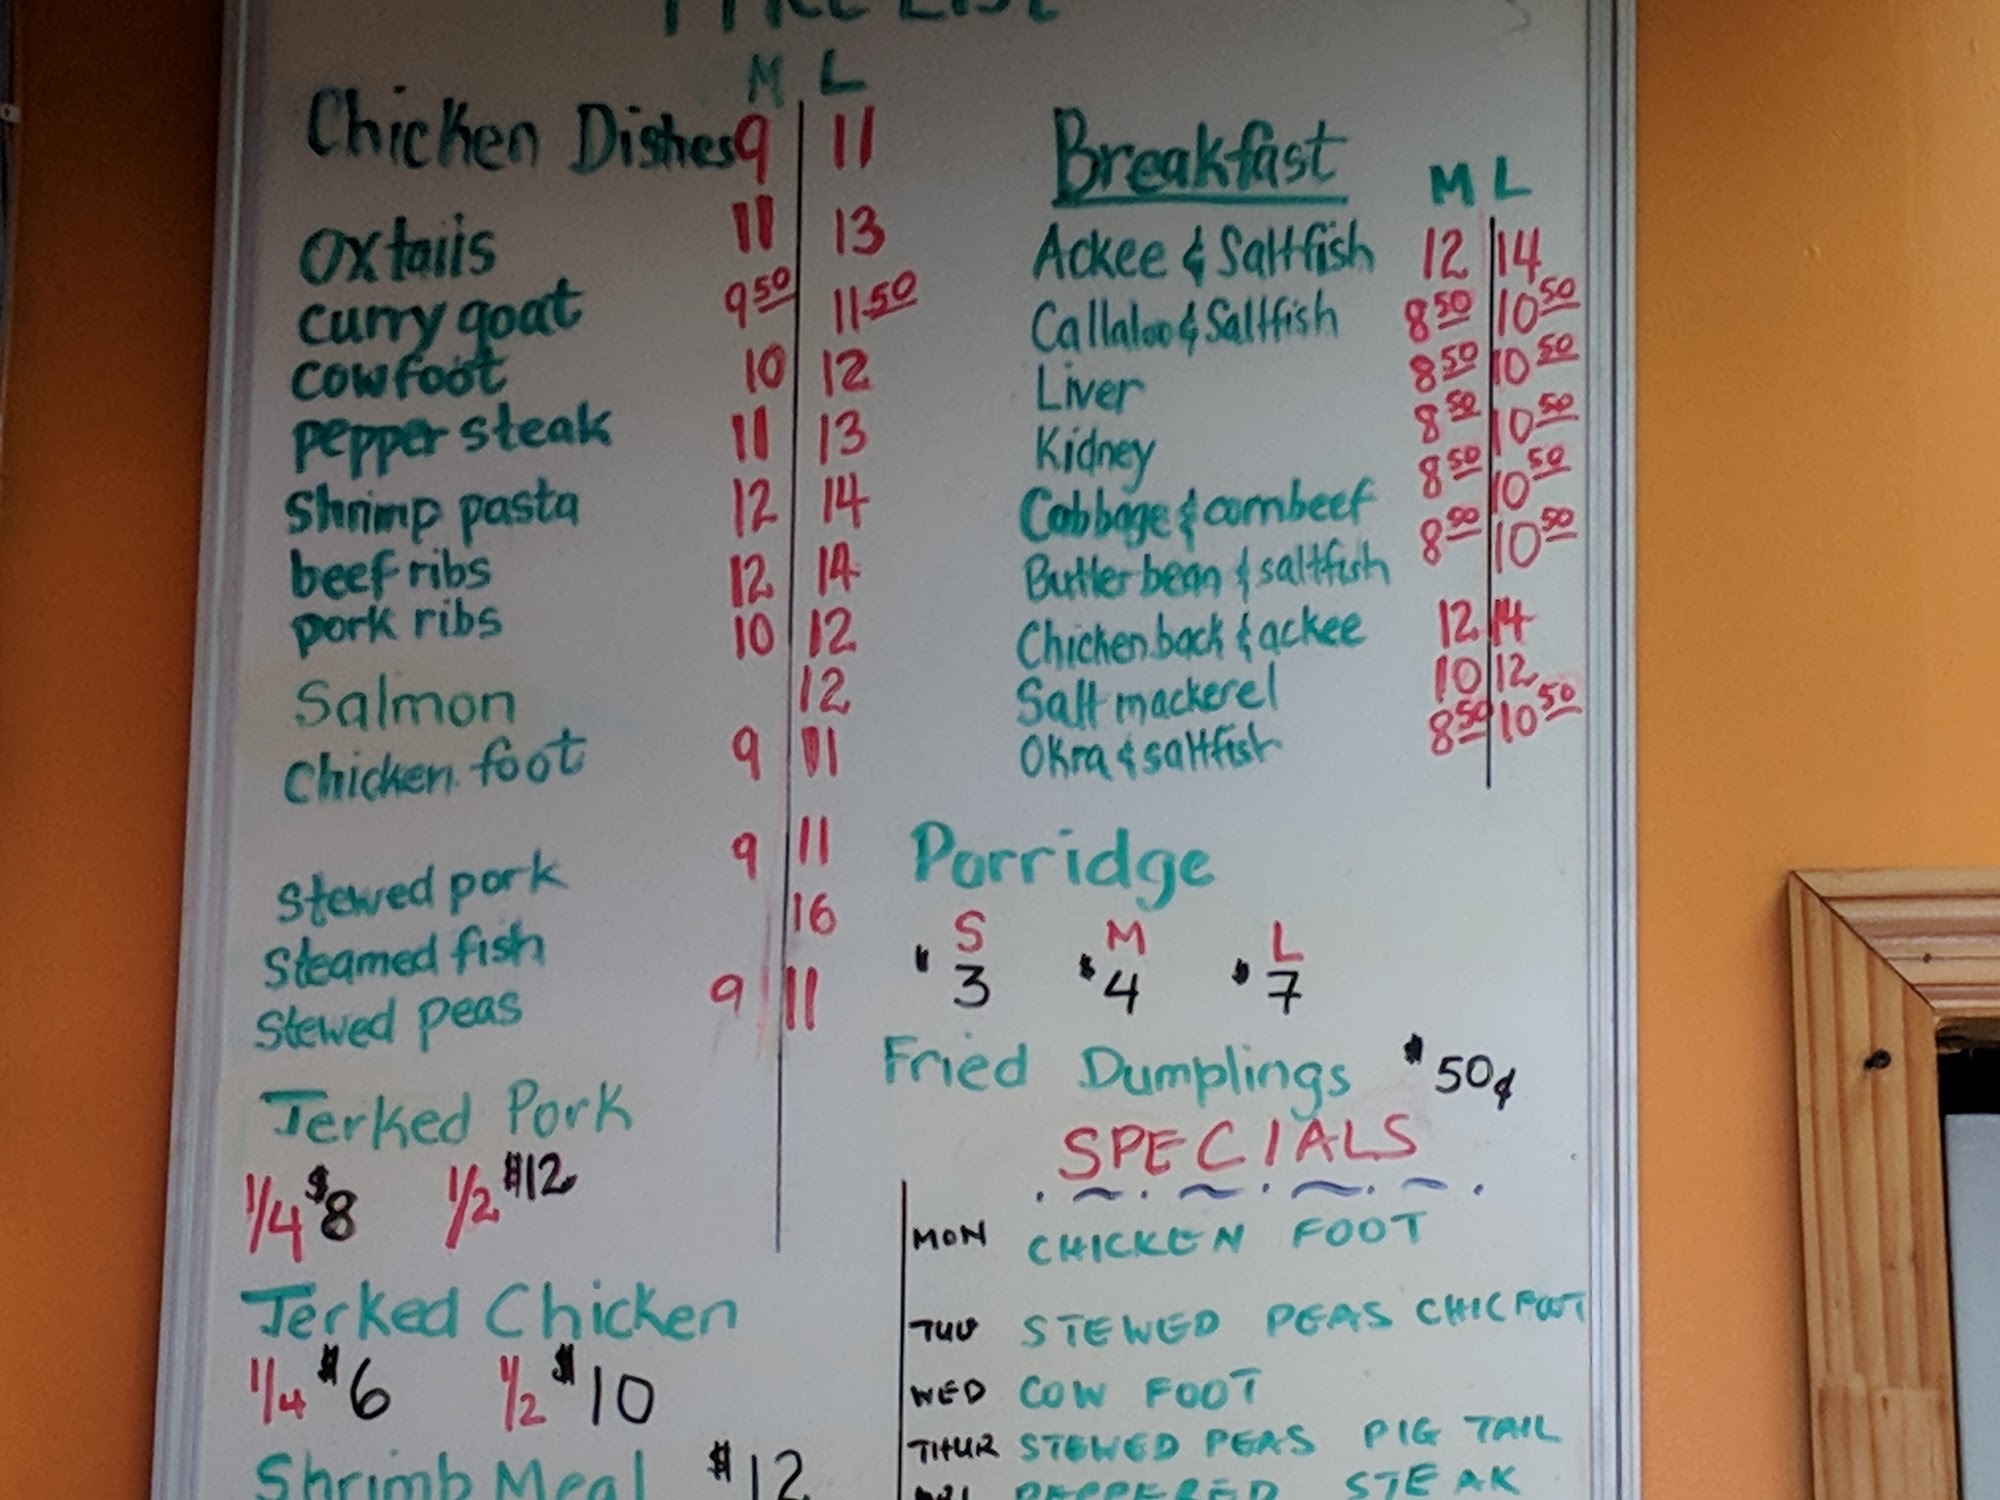 Price List
M L
Chicken Dishes 9 11
Oxtails 11 13
Curry goat 9 50 11 50
Cowfoot 10 12
Pepper steak 11 13
Shrimp pasta 12 14
beef ribs 12 14
pork ribs 10 12
Salmon 12
Chicken foot 9 11
Stewed pork 9 11
Steamed fish 16
Stewed peas 9 11
Jerked Pork
1/4 $8 1/2 $12
Jerked Chicken
1/4 $6 1/2 $10
Shrimp Meal $12
Breakfast
M L
Ackee & Saltfish 12 14
Callaloo & Saltfish 8 50 10 50
Liver 8 50 10 50
Kidney 8 50 10 50
Cabbage & cornbeef 8 50 10 50
Butter bean & saltfish 8 50 10 50
Chicken back & ackee 12 14
Salt mackerel 10 12
Okra & saltfish 8 50 10 50
Porridge
S M L
$3 $4 $7
Fried Dumplings $50¢
SPECIALS
MON CHICKEN FOOT
TUU STEWED PEAS CHIC FOOT
WED COW FOOT
THUR STEWED PEAS PIG TAIL
PEPPERED STEAK